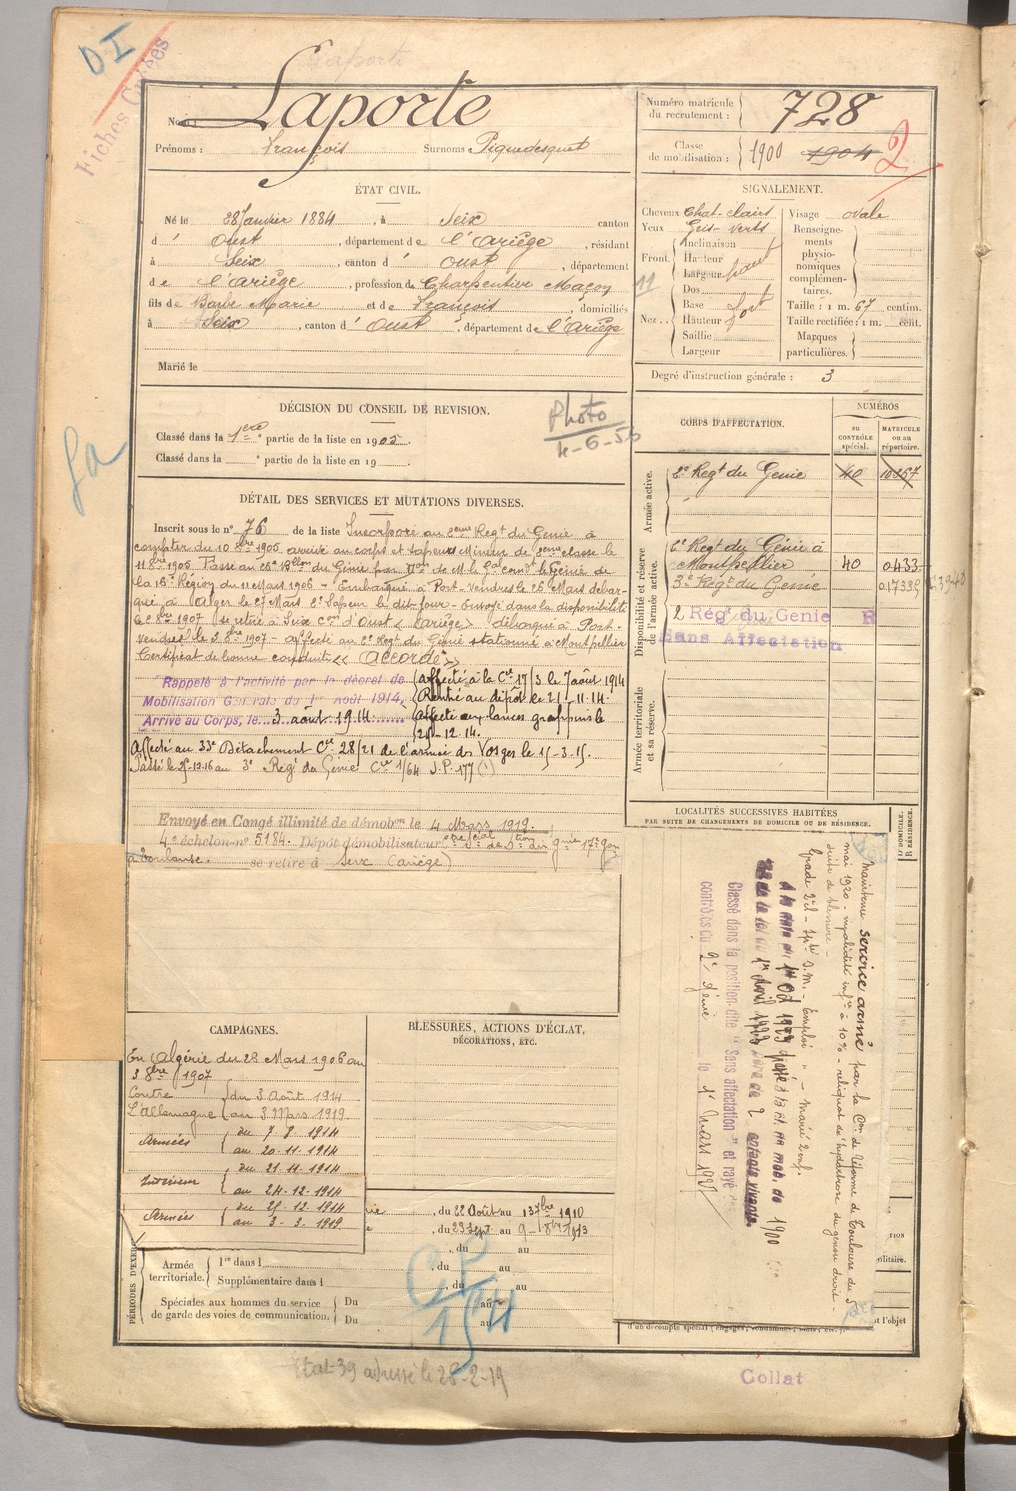 O I
Fiches Créées
Nom : Laporte
Prénoms : François Surnoms Piquedesquet
Numéro matricule du recrutement : 728
Classe de mobilisation : 1900 1904 2
ÉTAT CIVIL.
Né le 28 Janvier 1884, à Seix canton
d' Oust, département de l'Ariège, résidant
à Seix, canton d' Oust, département
de l'Ariège, profession de Charpentier Maçon
fils de Barve Marie et de François, domiciliés
à Seix, canton d' Oust, département de l'Ariège
Marié le
SIGNALEMENT.
Cheveux Chat-clairs
Yeux Gris-verts
Front Inclinaison
Hauteur
Largeur haut
Nez Dos
Base fort
Hauteur
Saillie
Largeur
11
Visage ovale
Renseignements physionomiques complémentaires.
Taille : 1 m. 67 centim.
Taille rectifiée : 1 m. cent.
Marques particulières.
Degré d'instruction générale : 3
DÉCISION DU CONSEIL DE REVISION.
Classé dans la 1ere partie de la liste en 1905.
Classé dans la partie de la liste en 19
Photo
4-6-56
Sa
DÉTAIL DES SERVICES ET MUTATIONS DIVERSES.
Inscrit sous le n° 76 de la liste Incorporé au 2eme Regt du Génie à
compter du 10 8bre 1905 arrivé au corps et sapeur Mineur de 2eme classe le
11 8bre 1905 Passé au 26e Blon du Génie par Don de M. le Gal comdt le Génie de
la 16e Région du 11 Mars 1906 - Embarqué à Port-Vendres le 26 Mars débar-
qué à Alger le 27 Mars 2e Sapeur le dit jour - Envoyé dans la disponibilité
le 2 8bre 1907 se retire à Seix Con d'Oust (Ariège) débarqué à Port-
Vendres le 3 8bre 1907 - affecté au 2e Regt du Génie stationné à Montpellier
Certificat de bonne conduite « Accordé »
Rappelé à l'activité par le décret de
Mobilisation Générale du 1er août 1914,
Arrivé au Corps, le 3 aout 1914
Affecté à la Cie 17/3 le 7 août 1914
Rentré au dépôt le 21.11.14
Affecté aux lances grappins le
25.12.14.
Affecté au 33e Détachement Cie 28/21 de l'armée des Vosges le 15.3.15.
Passé le 25-12-16 au 3e Régt du Génie Cie 1/64 J.P. 177
Envoyé en Congé illimité de démobon le 4 Mars 1919.
4e échelon n° 5184. Dépôt démobilisateur
à Toulouse. se retire à Seix (Ariège)
CORPS D'AFFECTATION.
NUMÉROS
au CONTRÔLE spécial.
MATRICULE ou au répertoire.
Armée active.
2e Regt du Génie 40 10267
Disponibilité et réserve de l'armée active.
2e Regt du Génie à
Montpellier 40 0433
3e Regt du Genie
2 Régt du Genie R
Sans Affectation
Armée territoriale et sa réserve.
LOCALITÉS SUCCESSIVES HABITÉES
PAR SUITE DE CHANGEMENTS DE DOMICILE OU DE RÉSIDENCE.
D. DOMICILE.
R. RÉSIDENCE
maintenu service armé par la Con de Réforme de Toulouse du 5
mai 1920 - invalidité infre à 10% reliquat de hydarthrose du genou droit -
suite de blessure -
Grade 2e cl - Spté S.M. - Emploi " - marié 2 enf.
A la date du 1er Oct 1929 passé à la cl. de mob. de 1900
de la loi du 1er Avril 1923 père de 2 enfants vivants.
Classé dans la position dite "Sans affectation" et rayé des
contrôles du 2e Génie le 1er Mars 1927
CAMPAGNES.
En Algérie du 28 Mars 1906 au
3 8bre 1907
Contre L'Allemagne du 3 Août 1914
au 3 Mars 1919.
Armées du 7.8.1914
au 20.11.1914
Intérieur du 21.11.1914
au 24.12.1914
Armées du 25.12.1914
au 3-3-1919
BLESSURES, ACTIONS D'ÉCLAT,
DÉCORATIONS, ETC.
PÉRIODES D'EXER
, du 22 Août au 13 7bre 1910
, du 23 Sept au 9-8bre 1913
, du au
, du au
, du au
Armée territoriale. 1re dans l
Supplémentaire dans l
Spéciales aux hommes du service de garde des voies de communication. Du au
Du au
CP
154
État-39 adressé le 28-2-19
Collat